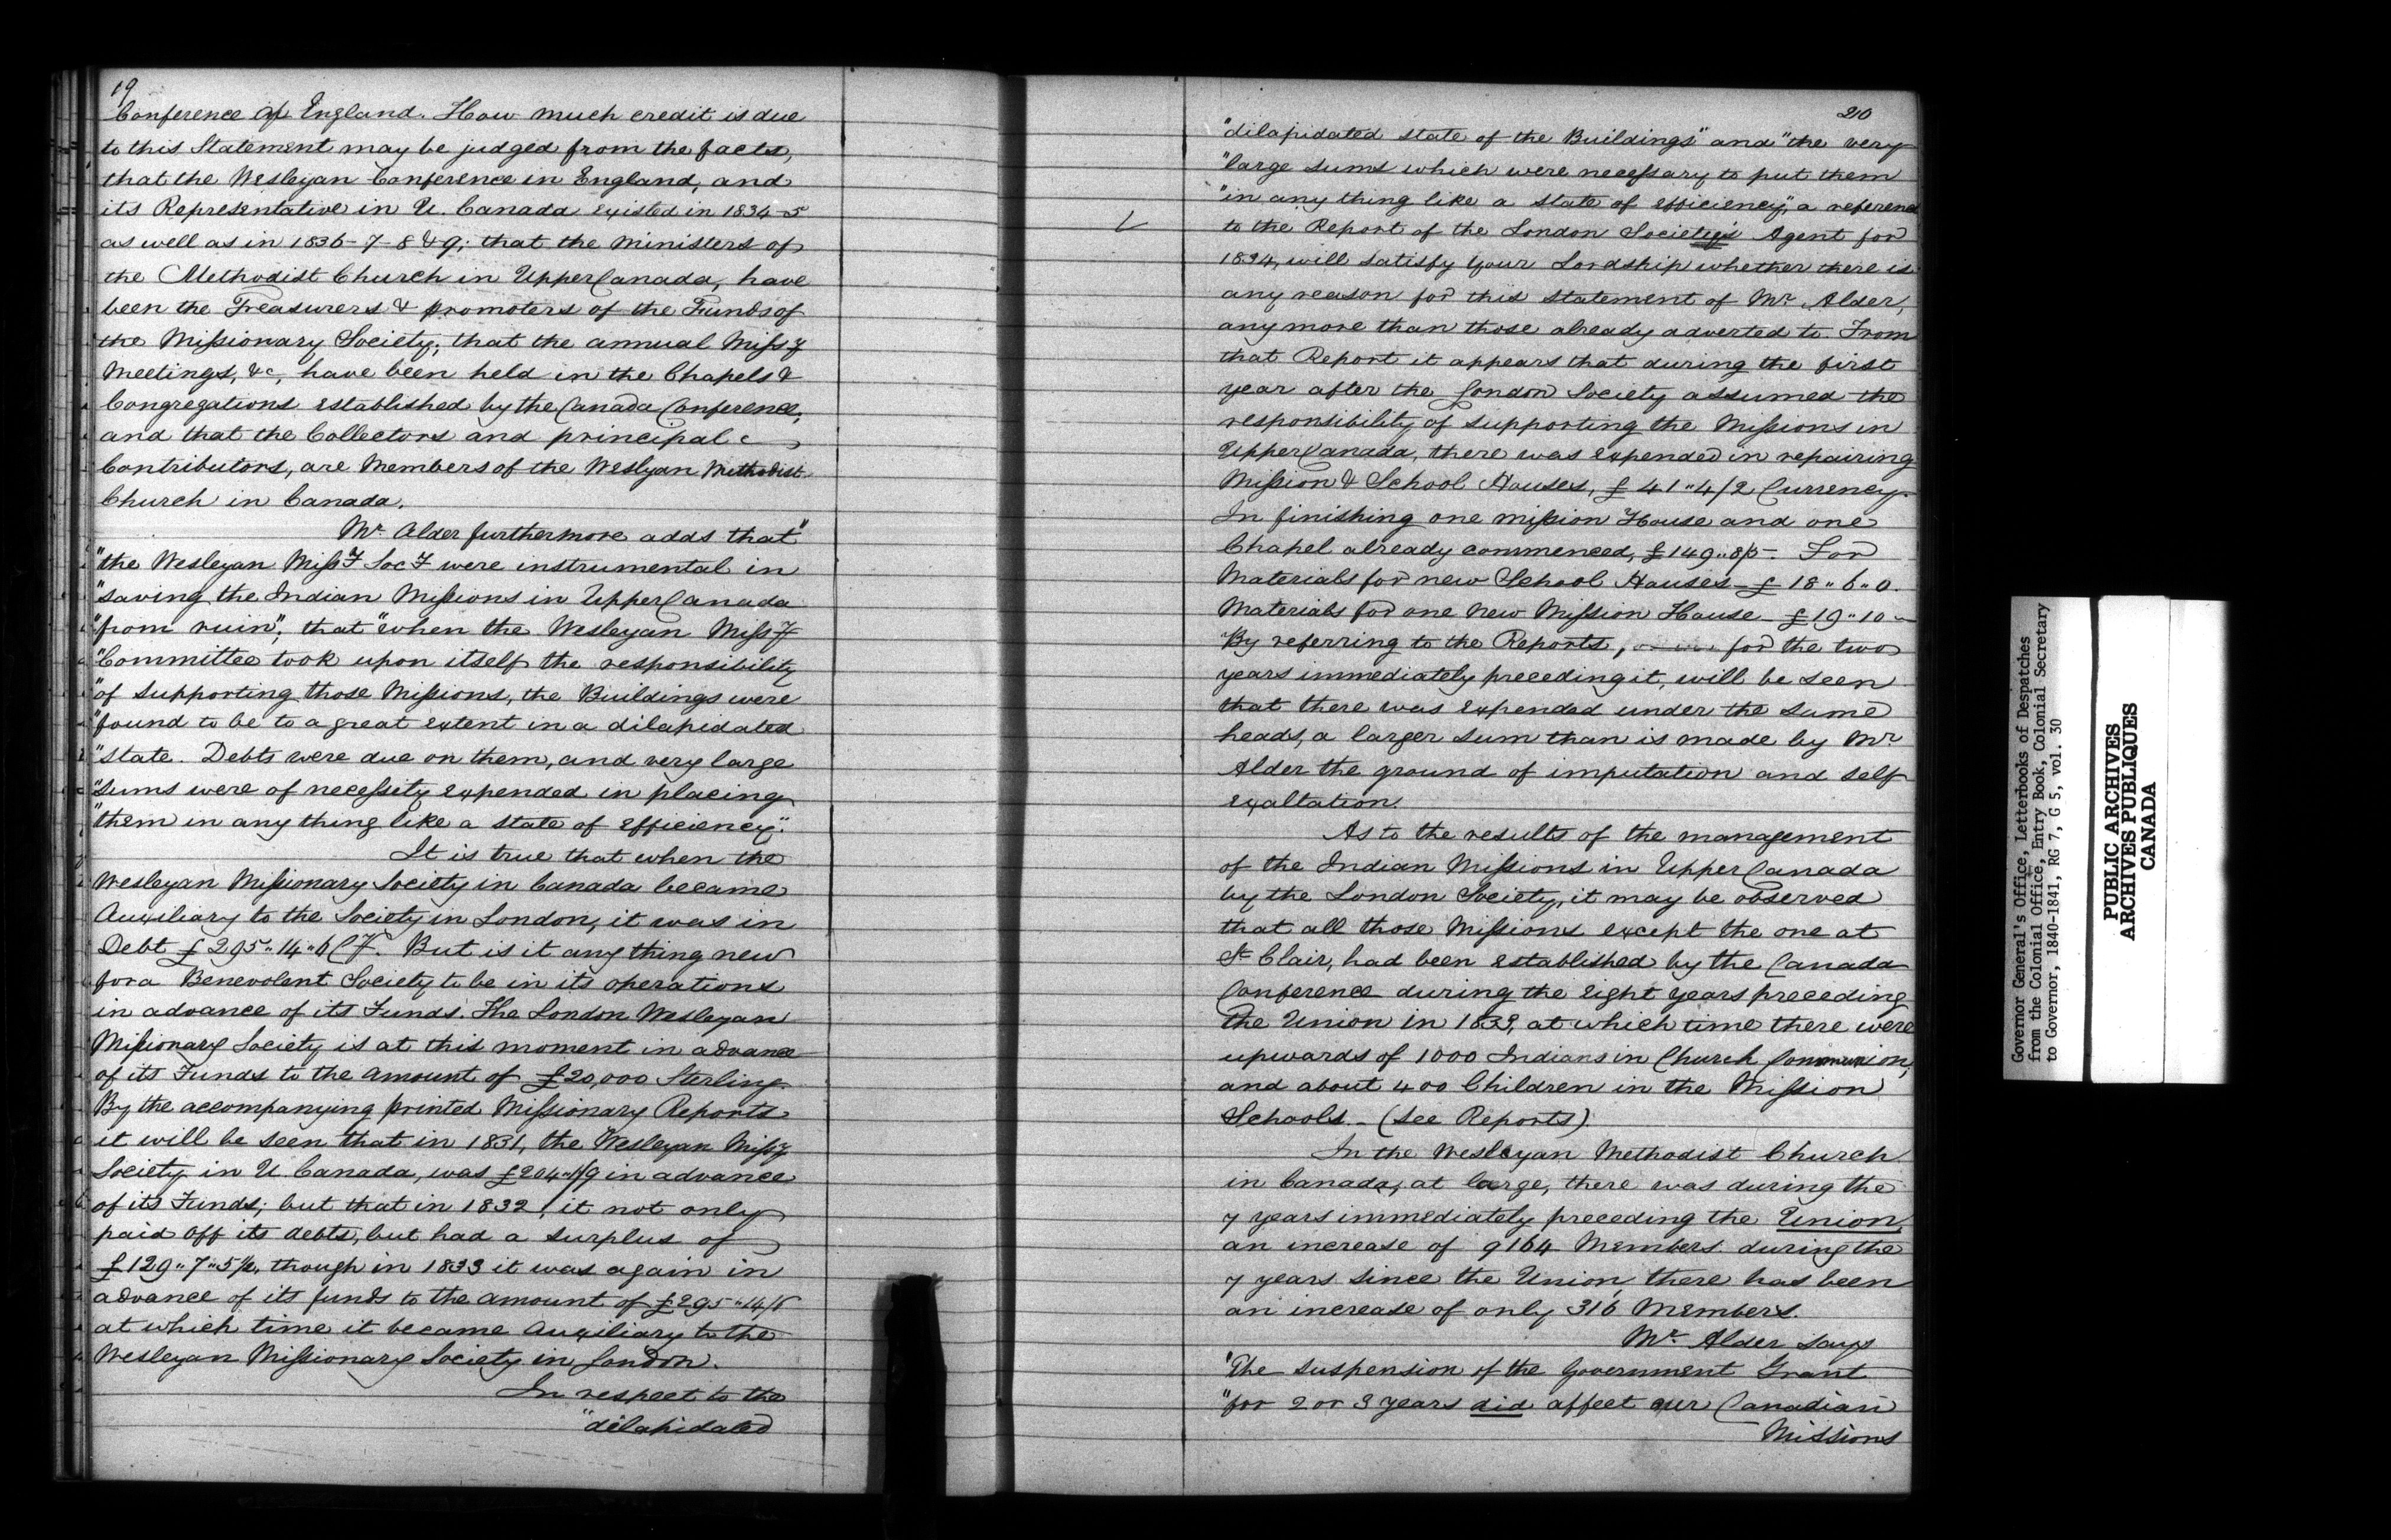 19
Conference of England. How much credit is due
to this Statement may be judged from the facts,
that the Wesleyan Conference in England, and
its Representative in U. Canada existed in 1834-5
as well as in 1836-7-8 & 9; that the Ministers of
the Methodist Church in Upper Canada, have
been the Treasurers & promoters of the Funds of
the Missionary Society; that the annual Missy
Meetings, &c, have been held in the Chapels &
Congregations established by the Canada Conference,
and that the Collectors and principal
Contributors, are Members of the Weslyan Methodist
Church in Canada.
Mr. Alder furthermore adds that"
"the Wesleyan Missy Socy were instrumental in
"saving the Indian Missions in Upper Canada
"from ruin"; that "when the Wesleyan Missy
"Committee took upon itself the responsibility
"of supporting those Missions, the Buildings were
"found to be to a great extent in a dilapidated
"state. Debts were due on them, and very large
"sums were of necessity expended in placing
"them in any thing like a state of efficiency."
It is true that when the
Wesleyan Missionary Society in Canada became
Auxiliary to the Society in London, it was in
Debt £295"14"6 Cy. But is it any thing new
for a Benevolent Society to be in its operations
in advance of its Funds. The London Wesleyan
Missionary Society is at this moment in advance
of its Funds to the amount of £20,000 Sterling.
By the accompanying printed Missionary Reports
it will be seen that in 1831, the Wesleyan Missy
Society in U. Canada, was in advance
of its Funds; but that in 1832, it not only
paid off its debts, but had a surplus of
£129"7"5½, though in 1833 it was again in
advance of its funds to the amount of £295"14/6
at which time it became Auxiliary to the
Wesleyan Missionary Society in London.
In respect to the
"dilapidated
210
"dilapidated state of the Buildings" and "the very
"large sums which were necessary to put them
"in any thing like a state of efficiency," a reference
to the Report of the London Society's Agent for
1834, will satisfy your Lordship whether there is
any reason for this statement of Mr. Alder,
any more than those already adverted to. From
that Report it appears that during the first
year after the London Society assumed the
responsibility of supporting the Missions in
Upper Canada, there was expended in repairing
Mission & School Houses, £41"4/2 Currency.
In finishing one mission House and one
Chapel already commenced, £149"8/5-. For
Materials for new School Houses - £18"6"0.
Materials for one new Mission House - £19"10-
By referring to the Reports, for the two
years immediately preceding it, will be seen
that there was expended under the same
heads, a larger sum than is made by Mr
Alder the ground of imputation and self
exaltation.
As to the results of the management
of the Indian Missions in Upper Canada
by the London Society, it may be observed
that all those Missions except the one at
St Clair, had been established by the Canada
Conference during the eight years preceding
the Union in 1833, at which time there were
upwards of 1000 Indians in Church Communion,
and about 400 Children in the Mission
Schools. - (see Reports).
In the Wesleyan Methodist Church
in Canada, at large, there was during the
7 years immediately preceding the Union,
an increase of 9164 Members. during the
7 years since the Union, there has been
an increase of only 316 Members.
Mr. Alder says
"The suspension of the Government Grant
"for 2 or 3 years did affect our Canadian
Missions
Governor General's Office, Letterbooks of Despatches
from the Colonial Office, Entry Book, Colonial Secretary
to Governor, 1840-1841, RG 7, G 5, vol. 30
PUBLIC ARCHIVES
ARCHIVES PUBLIQUES
CANADA